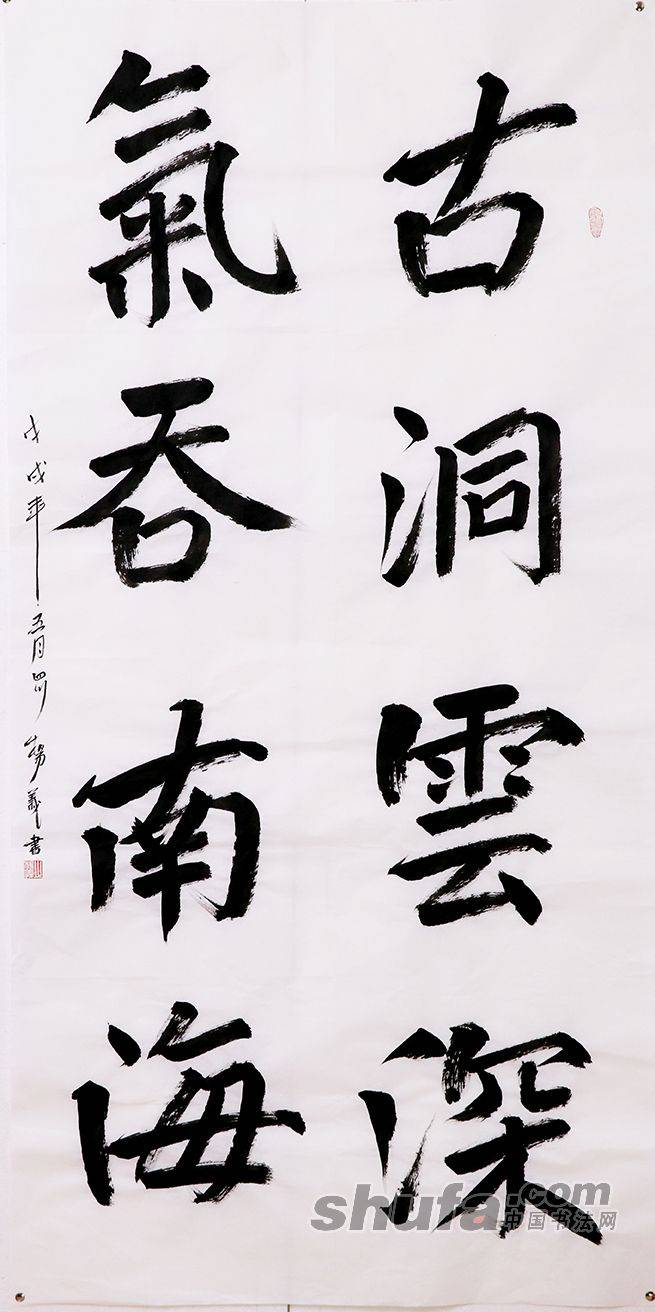 古洞雲深
氣吞南海
戊戌年五月四川楊義書
shufa.com
中国书法网